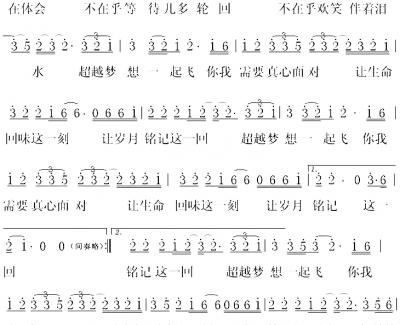 在体会 不在乎等 待几多 轮 回 不在乎欢笑 伴着泪
3 5 2 3 2 · 3 2 1 3 3 2 1 2 · 1 6 1 2 3 3 5 2 3 2 2 3 2 1
水 超越梦 想 一 起飞 你我 需要 真心面 对 让生命
3 2 2 1 6 6 · 0 6 6 1 2 2 2 1 2 3 2 · 3 2 1 3 3 2 1 2 · 1 6
回味这一刻 让岁月 铭记这一回 超越梦 想 一 起飞 你我
1 2 3 3 5 2 3 2 2 3 2 1 3 2 2 1 6 6 0 6 6 1 1. 2 2 · 0 3 · 6
需要 真心面 对 让生命 回味这一刻 让岁月 铭记 这 一
2 1 · 0 0 (间奏略) 2. 2 2 2 1 2 3 2 · 3 2 1 3 3 5 3 2 · 1 6
回 铭记 这一回 超越梦 想 一起飞 你我
1 2 3 3 5 2 3 2 2 3 2 1 3 5 2 1 6 0 6 6 1 2 2 2 1 2 3 2 3 5 6